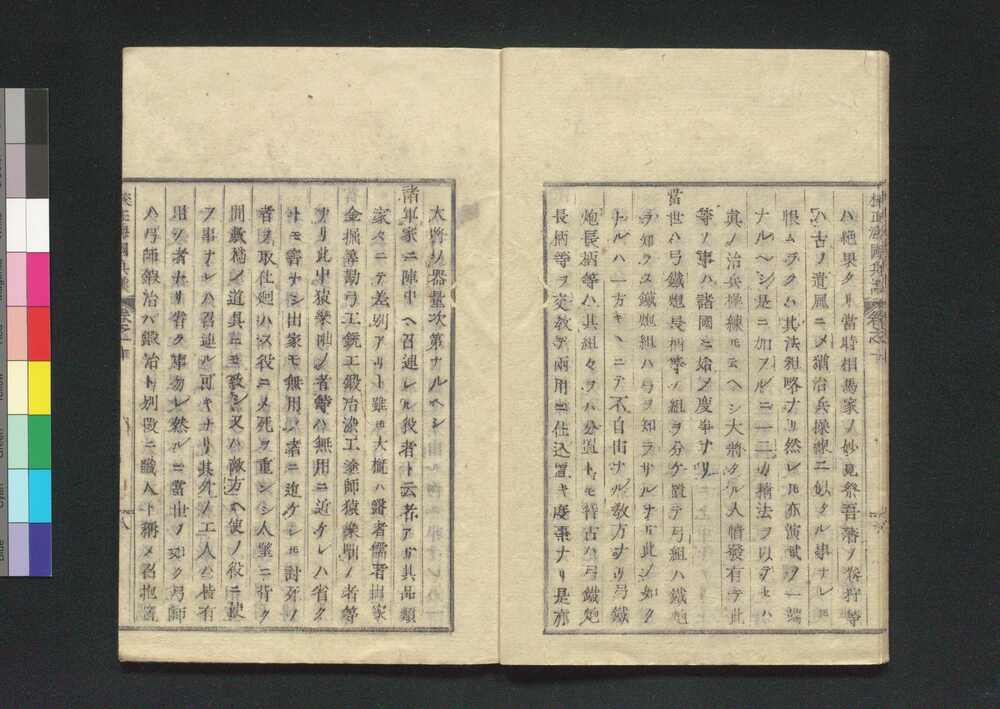 ハ牺果タリ當時相馬家ノ妙見祭吾藩ノ卷狩等
ハ古ノ遺風ニ〆猶治兵操練ニ似タル事ナレ𪜈
恨ムラクハ其法粗略ナリ然レ𪜈亦演武ノ一端
ナルヘシ是ニ加フルニ一二ノ搆法ヲ以テセハ
真ノ治兵操練𪜈云ヘシ大將タル人情發有テ此
等ノ事ハ諸國ニ始メ度事ナリ
當世ハ弓鐵炮長柄等ノ組ヲ分ケ置テ弓組ハ鐵炮
ヲ知ラス鐵炮組ハ弓ヲ知ラサルナリ此ノ如ク
ナルハ一方キヽニテ不自由ナル教方ナリ弓鐵
炮長柄等ハ其組々ヲハ分置ト𪜈稽古ハ弓鐵炮
長柄等ヲ交教テ兩用ニ仕込置キ度事ナリ是亦
大將ノ器量次第ナルヘシ
諸軍家ニ陣中ヘ召連レル役者ト云者アリ其品類
家々ニテ差別アリト雖𪜈大概ハ醫者儒者出家
金掘筭勘弓工銃工鍛冶染工塗師猿樂咄ノ者等
ナリ此中猿樂咄ノ者等ハ無用ニ近ケレハ省ク
ト𪜈害ナシ出家モ無用ノ者ニ近ケレ𪜈討死ノ
者ヲ取仕廻ハス役ニ〆死ヲ重シシ人壟ニ背ク
間敷穏シ道具ニ𪜈教シ又ハ敵方ヘ使ノ役ニ使
フ事ナレハ召連ル可キナリ其外ノ工人ハ皆有
用ノ者ナリ省ク事勿レ然ルニ當世ノ如ク弓師
ハ弓師鍛冶ハ鍛冶ト別段ニ職人ト稱〆召抱置